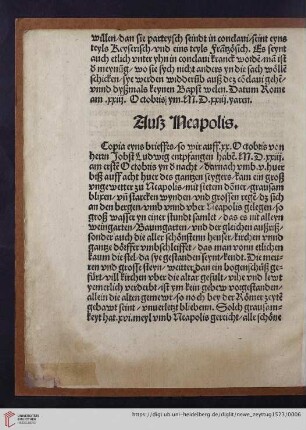 willen/dan sie parteysch seindt in conclaui/seint eyns
teyls Keyserisch/vnd eins teyls Frãtzösich. Es seynt
auch etlich vnter yhn in conclaui kranck wordẽ/mã ist
d meynũg/wo sie sych nicht anders yn die sach wölle
schicken/sye werden widderũb auß dez cõclaui gehẽ
vnnd dyßmals keynen Bapst welen. Datum Rome
am .xxiij. Octobris/ym .M.D.xxiij. yaren.
Auß Neapolis.
Copia eyns brieffes/so wir auff .xx. Octobris von
herrn Jobst Ludwig entpfangen habẽ. M.D.xxiij.
am erstẽ Octobris yn d nacht/darnach vmb .v. huer
biß auff acht huer des gantzen sygers/kam ein groß
vngewetter zu Neapolis/mit stetem dõner/grausam
blixen/vñ starcken wynden/vnd grossen regẽ/dz sich
an den bergen/vmb vnnd vber Neapolis gelegen/so
groß wasser yn einer stundt samlet/das es nit alleyn
weingarten/Baumgarten/vnd der gleichen außriß/
sonder auch die aller schönstenn heuser/kirchen vnnd
gantze dörffer vmbschleifft/das man vom etlichen
kaum die stel/da sye gestanden seyn/kendt. Die meu-
ren vnd grosse steyn/weitter/dan ein bogenschüß ge-
fürt/all kirchen vber die altar gefült/vihe vnd lewt
yemerlich verderbt/ist ym kein gebew vorgestanden/
allein die alten gemewr/so noch bey der Römer zeytẽ
gebawt seint/vnuerletzt bliebenn. Solch grausam-
keyt hat .xvi. meyl vmb Neapolis gereicht/alle schöne
https://digi.ub.uni-heidelberg.de/diglit/newe_zeyttug1523/0006
UNIVERSITÄTS-
BIBLIOTHEK
HEIDELBERG